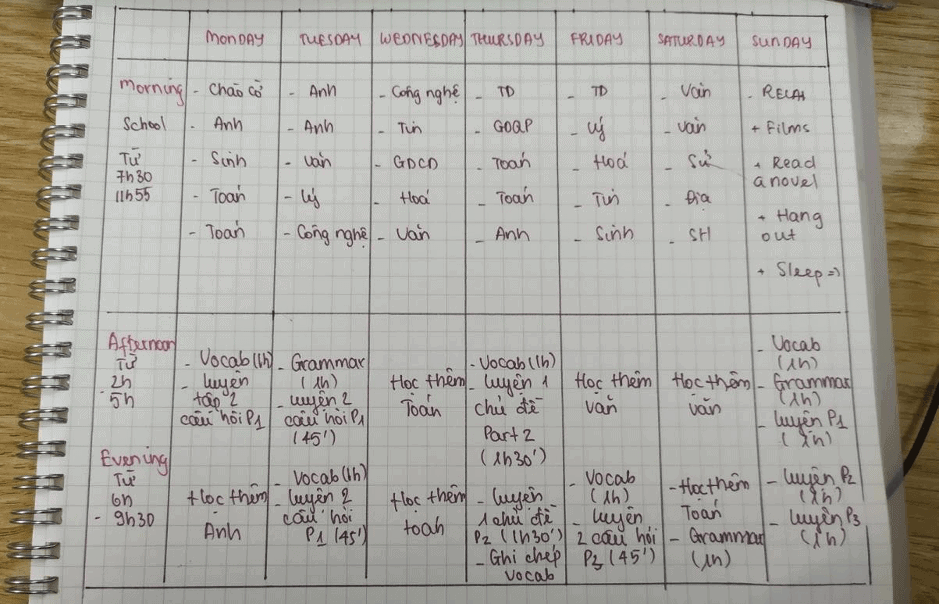 MONDAY TUESDAY WEDNESDAY THURSDAY FRIDAY SATURDAY SUNDAY
Morning
School
Từ
7h30
11h55
- Chào cờ
- Anh
- Sinh
- Toán
- Toán
- Anh
- Anh
- Văn
- Lý
- Công nghệ
- Công nghệ
- Tin
- GDCD
- Hoá
- Văn
- TD
- GDQP
- Toán
- Toán
- Anh
- TD
- Lý
- Hoá
- Tin
- Sinh
- Văn
- Văn
- Sử
- Địa
- SH
- RELAX
+ Films
+ Read
a novel
+ Hang
out
+ Sleep =)
Afternoon
Từ
2h
- 5h
- Vocab (1h)
- luyện
tập 2
câu hỏi P1
- Grammar
(1h)
- luyện 2
câu hỏi P1
(45')
Học thêm
Toán
- Vocab (1h)
- luyện 1
chủ đề
Part 2
(1h30')
Học thêm
văn
Học thêm
văn
- Vocab
(1h)
- Grammar
(1h)
- luyện P1
(1h)
Evening
Từ
6h
- 9h30
Học thêm
Anh
- Vocab (1h)
- luyện 2
câu hỏi
P1 (45')
Học thêm
toán
- luyện
1 chủ đề
P2 (1h30')
- Ghi chép
vocab
- Vocab
(1h)
- luyện
2 câu hỏi
(45')
- Học thêm
Toán
- Grammar
(1h)
- luyện P2
(1h)
- luyện P3
(1h)